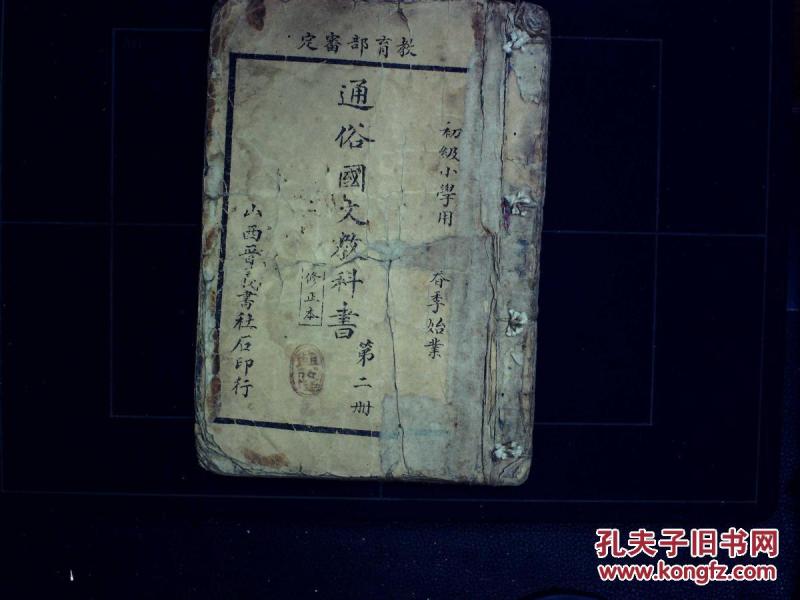 教育部審定
初級小學用
春季始業
通俗國文教科書
第二册
修正本
山西晉義書社石印行
孔夫子旧书网
www.kongfz.com